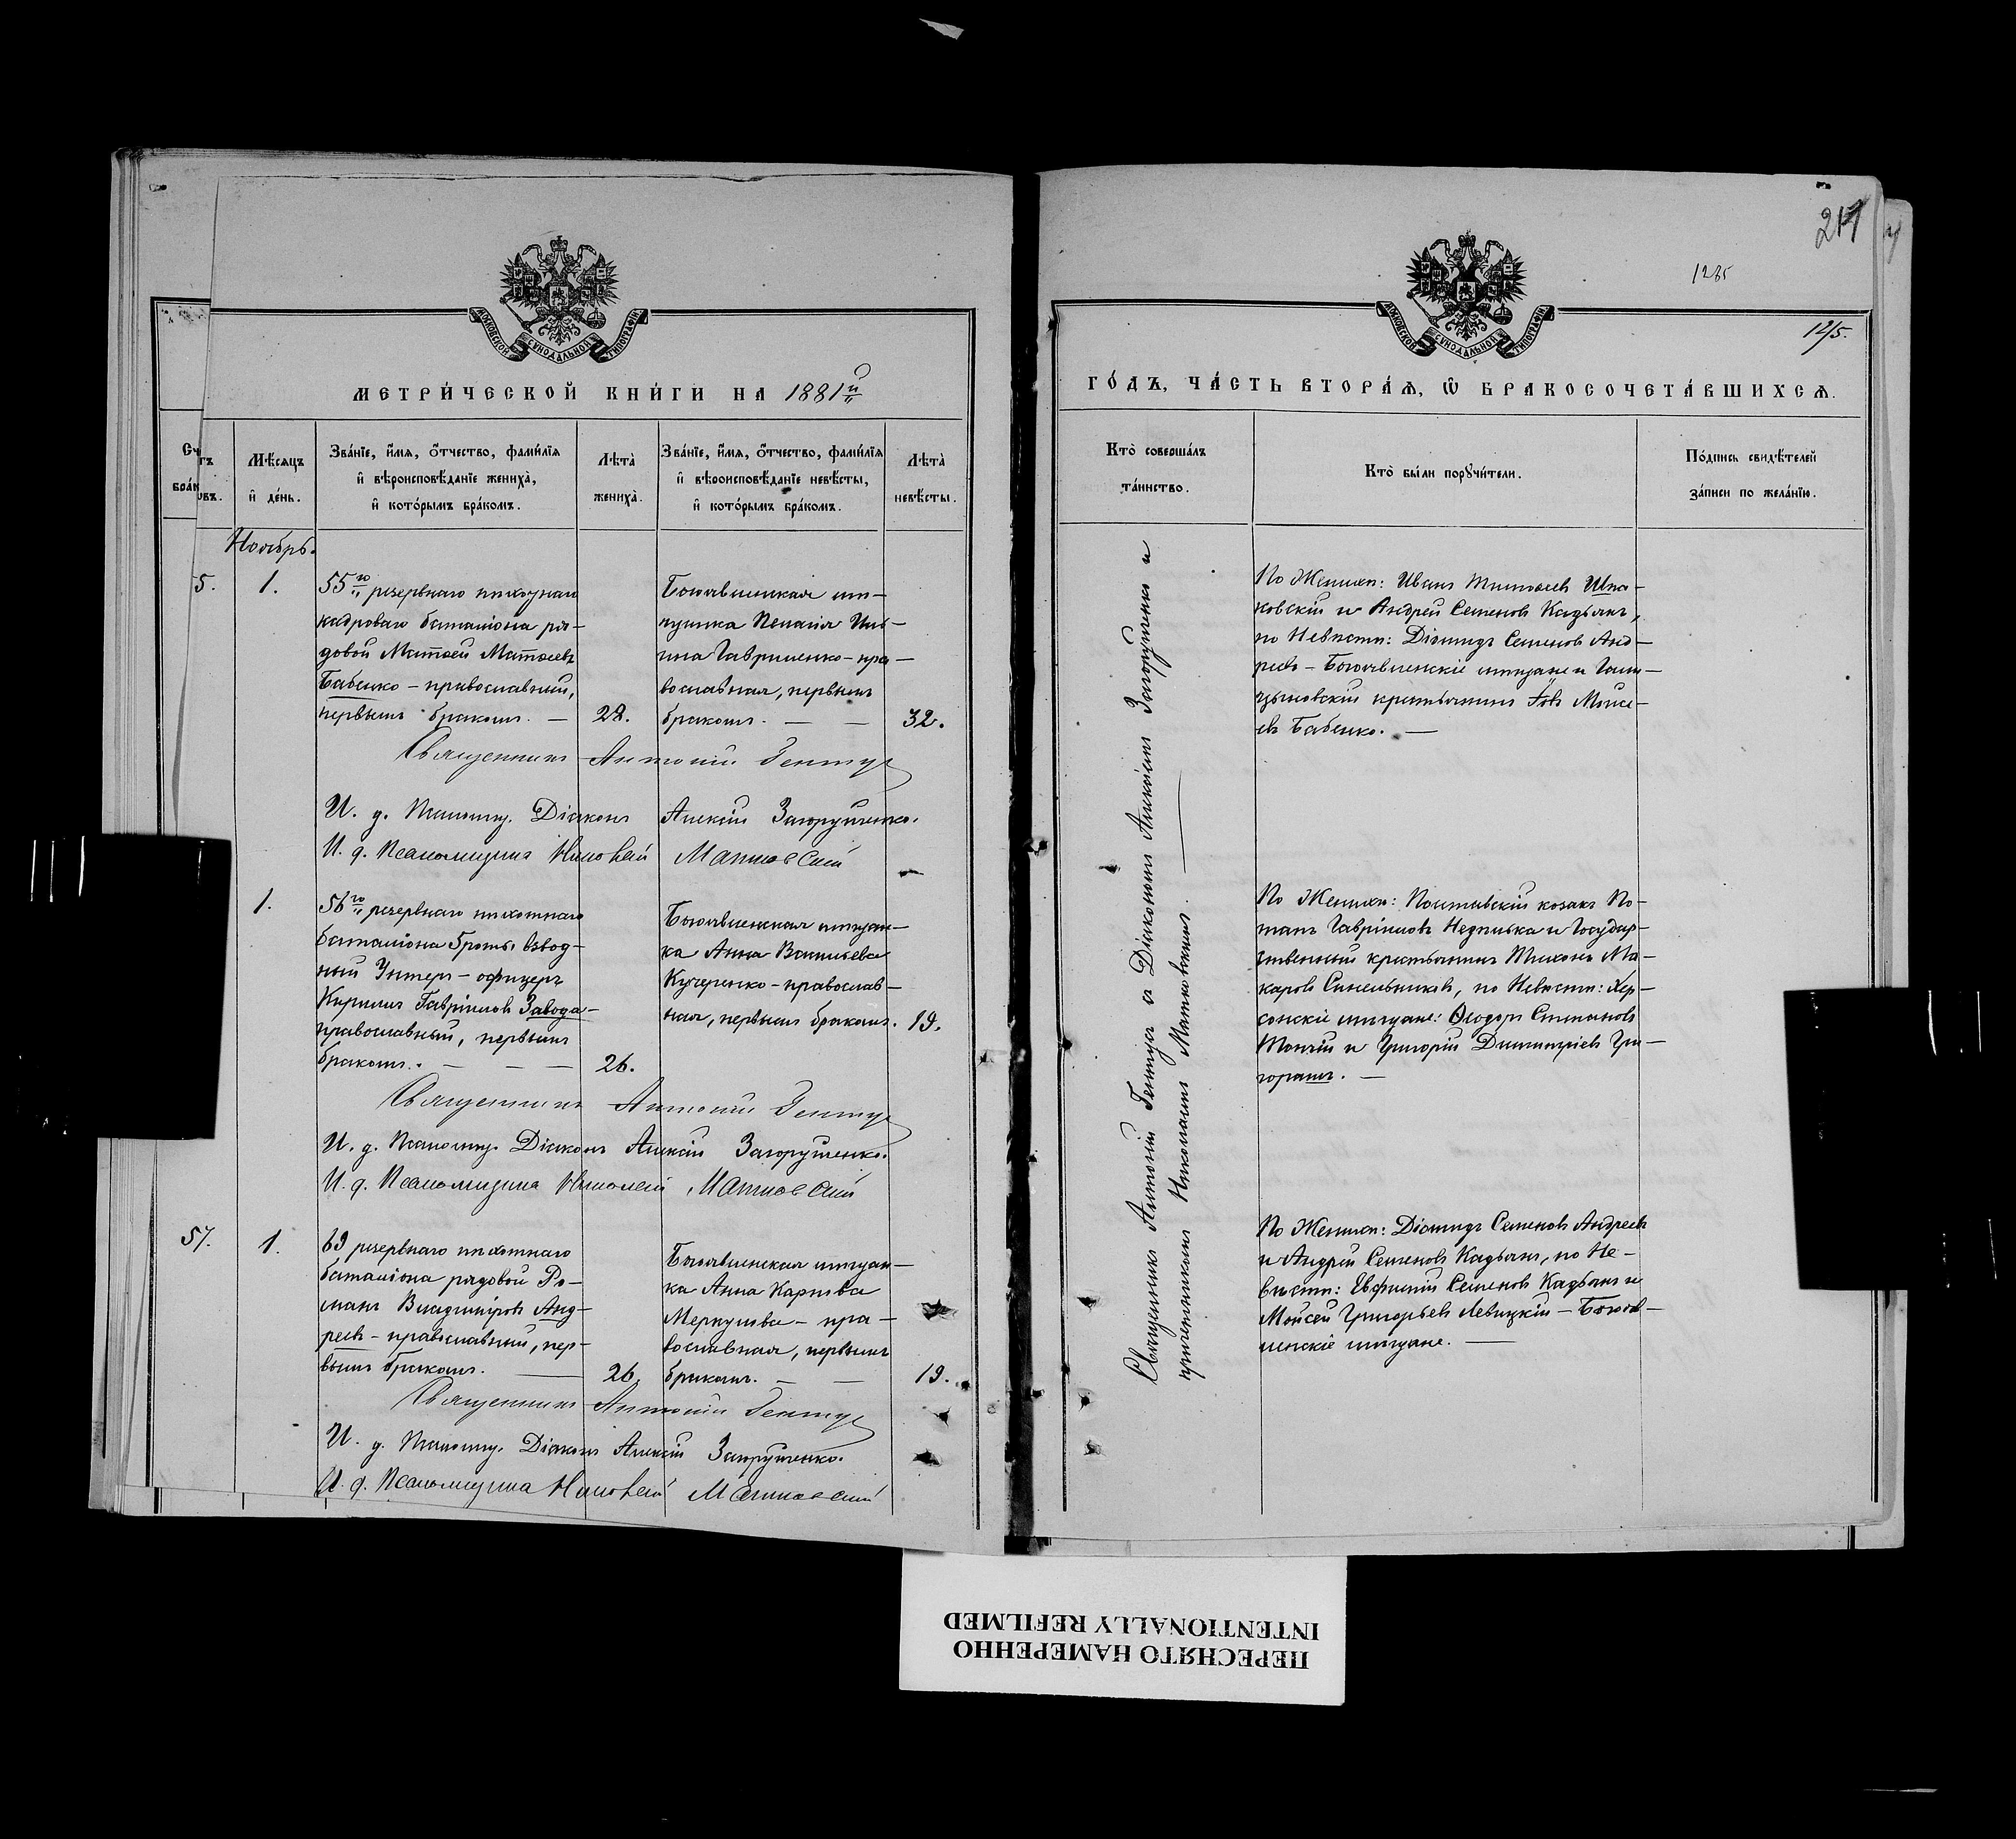 217
1285
1215.
МОСКОВСКОЙ СУНОДАЛЬНОЙ ТИПОГРАФІИ
МЕТРИ́ЧЕСКОЙ КНИ́ГИ НА 1881й
Мѣ́сяцъ
и҆ де́нь.
Зва́нїе, и҆́мя, ѻ҆́тчество, фами́лїя
и҆ вѣроисповѣ́данїе жениха̀,
и҆ кото́рымъ бра́комъ.
Лѣта̀
жениха̀.
Зва́нїе, и҆́мя, ѻ҆́тчество, фами́лїя
и҆ вѣроисповѣ́данїе невѣ́сты,
и҆ кото́рымъ бра́комъ.
Лѣта̀
невѣ́сты.
Ноябрь.
5.
1.
55го резервнаго пѣхотнаго
кадроваго баталіона ря-
довой Матѳей Матѳеевъ
Бабенко - православный,
первымъ бракомъ. —
28.
Богоявленская мѣ-
щанка Пелагія
Гавриленко - пра-
вославная, первымъ
бракомъ. — —
32.
Священникъ Антоній Гентуз
И. д. Псаломщ. Діаконъ Алексій Загорученко.
И. д. Псаломщика Николай Матковскій
1.
56го резервнаго пѣхотнаго
баталіона 3 роты взвод-
ный Унтеръ-офицеръ
Кириллъ Гавріиловъ Завода-
православный, первымъ
бракомъ. — — —
26.
Богоявленская мѣщан-
ка Анна Васильева
Кучеренко - православ-
ная, первымъ бракомъ.
19.
Священникъ Антоній Гентуз
И. д. Псаломщ. Діаконъ Алексій Загорученко.
И. д. Псаломщика Николай Матковскій
57.
1.
69 резервнаго пѣхотнаго
баталіона рядовой Ро-
манъ Владиміровъ Анд-
реевъ - православный, пер-
вымъ бракомъ. —
26.
Богоявленская мѣщан-
ка Анна Карпова
Меркулова - пра-
вославная, первымъ
бракомъ. — —
19.
Священникъ Антоній Гентуз
И. д. Псаломщ. Діаконъ Алексій Загорученко.
И. д. Псаломщика Николай Матковскій
МОСКОВСКОЙ СУНОДАЛЬНОЙ ТИПОГРАФІИ
ГО́ДЪ, ЧА́СТЬ ВТОРА́Ѧ, Ѡ҆ БРАКОСОЧЕТА́ВШИХСѦ.
Кто̀ соверша́лъ
та́инство.
Кто̀ бы́ли порꙋчи́тели.
По́дпись свидѣ́телей
за́писи по жела́нїю.
Священникъ Антоній Гентуз съ Діакономъ Алексіемъ Загорученко и
причетникомъ Николаемъ Матковскимъ. —
По Женихѣ: Иванъ Тимоѳеевъ Шпа-
ковскій и Андрей Семеновъ Кадьянъ,
по Невѣстѣ: Діомидъ Семеновъ Анд-
реевъ - Богоявленскіе мѣщане и
крестьянинъ Іовъ Моисе-
евъ Бабенко. —
По Женихѣ: Полтавскій козакъ По-
тапъ Гавріиловъ Недѣлька и Государ-
ственный крестьянинъ Тихонъ Ма-
каровъ Синельниковъ, по Невѣстѣ: Хер-
сонскіе мѣщане: Ѳеодоръ Степановъ
Топчій и Григорій Димитріевъ Гри-
горашъ. —
По Женихѣ: Діомидъ Семеновъ Андреевъ
и Андрей Семеновъ Кадьянъ, по Не-
вѣстѣ: Евфимій Семеновъ Кадьянъ и
Моисей Григорьевъ Левицкій - Богояв-
ленскіе мѣщане. —
ПЕРЕСНЯТО НАМЕРЕННО
INTENTIONALLY REFILMED